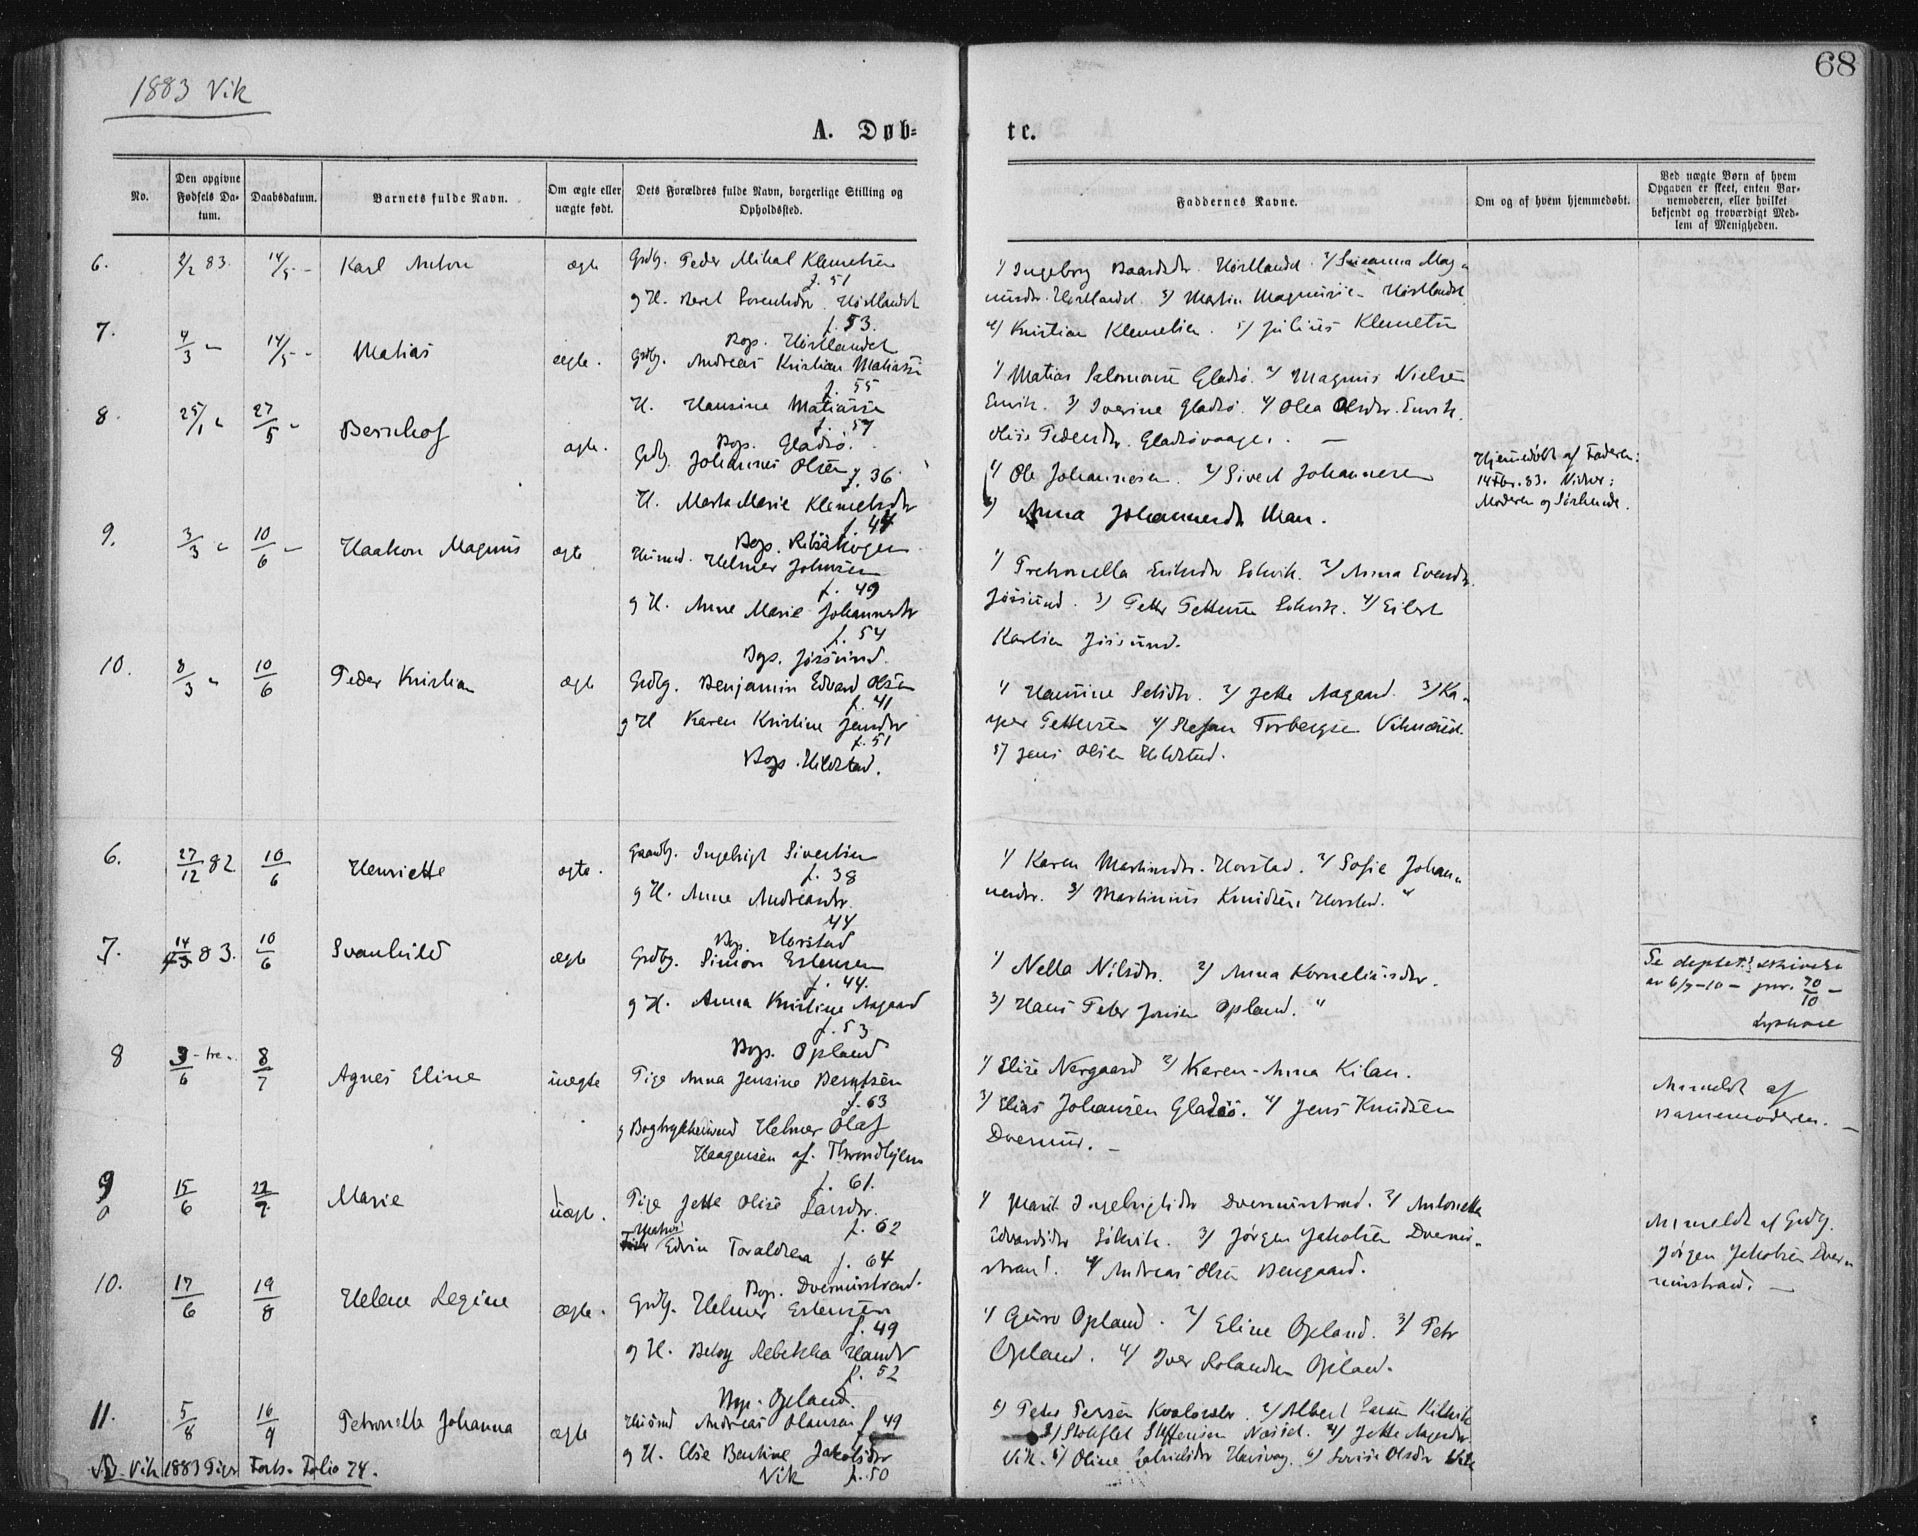 68
1883 Vik
A. Døb-
te.
No.
Den opgivne Fødsels Datum.
Daabsdatum.
Barnets fulde Navn.
Om ægte eller uægte født.
Dets Forældres fulde Navn, borgerlige Stilling og Opholdssted.
Faddernes Navne.
Om og af hvem hjemmedøbt.
Ved uægte Børn af hvem Opgaven er skeet, enten Barnemoderen, eller hvilket bekjendt og troværdigt Medlem af Menigheden.
6. 2/2 83. 14/5 - Karl Anton ægte Grdbg. Peder Mikal Klemetsen
f. 51
g H. Beret Horstlandet
f. 53.
Bop. Horstlandet
1/ Ingeborg Baardsdr. Horstlandet. 2/ Susanna Mag-
nusdr. Horstlandet. 3/ Martin Magnusen Horstlandet
4/ Kristian Klemetsen. 5/ Julius Klemetsen
7. 4/3 " 14/5 - Matias ægte. Grdbg. Andreas Kristian Matiassen
f. 55
H. Hansine Matiasse
f. 57
Bop. Gladsö.
1/ Matias Salomonsen Gladsö. 2/ Magnus Nielsen
Survik. 3/ Iverine Gladsö. 4/ Olea Olsdr. Survik.
Olise Pedersdr. Gladsövaage. -
8. 25/1 " 27/5 " Bernhof ægte. Grdbg. Johannes Olsen
f. 36
H. Marta Marie Klemetsdr
f. 44
Bop.
1/ Ole Johannesen. 2/ Sivert Johannesen
3/ Anna Johannesdr Man.
Hjemmedøbt af Faderen:
14 Fbr. 83. Vidner:
Moderen og
9. 3/3 " 10/6 - Haakon Magnus ægte Husmd. Helmer Johnsen
f. 49
g H. Anne Marie Johannesdr
f. 54
Bop. Jössund.
1/ Petronella Eriksdr Solvik. 2/ Anna Evensdr.
Jössund. 3/ Petter Pettersen Solvik. 4/ Eilert
Karlsen Jössund.
10. 8/3 " 10/6 Peder Kristian ægte Grdbg. Benjamin Edvard Olsen
f. 41
g H Karen Kristine Jensdr
f. 51
Bop. Hildstad.
1/ Hansine 2/ Jette Aagaard. 3/ Ka-
Pettersen 4/ Stefan Torbergsen
5/ Jens Olsen Hildstad.
6. 27/12 82 10/6 Henriette ægte. Gaardbg. Ingebrigt Sivertsen
f. 38
g H. Anne Andreasdr.
44
Bop. Horstad
1/ Karen Martinsdr. Horstad. 2/ Sofie Johan-
nesdr. 3/ Martinus Knudsen Horstad. "
7. 14/3 83. 10/6 Svanhild ægte Grdbg. Simon Estensen
f. 44.
g H. Anna Kristine Aagaard
f. 53
Bop. Opland
1/ Nella Nilsdr. 2/ Anna Korneliusdr.
3/ Hans Peter Jonsen Opland. "
Se deptets skrivelse
av 6/9-10 - jnr. 70/10 -
8 3/6 - tre - 8/7 Agnes Eline uægte Pige Anna Jensine Berntsen
f. 63
g Helmer Olaf
Haagensen af Throndhjem
f. 61.
1/ Elise Nergaard 2/ Karen-Anna Kilan.
3/ Elias Johansen Gladsö. 4/ Jens Knudsen
Dversnes. -
Anmeldt af
Barnemoderen. -
9 15/6 22/7 Marie uægte. Pige Jette Olise Larsdr.
f. 62
Edvin Toraldsen f. 64
Bop. Dversnesstrand.
1/ Marit Ingebrigtsdr Dversnesstrand. 2/ Antonette
Edvardsdr Solvik. 3/ Jørgen Jakobsen Dversnes-
strand. 4/ Andreas Olsen Bengaard.
Anmeldt af Grdbg.
Jørgen Jakobsen Dvers-
nesstrand. -
10. 17/6 19/8 Helene Regine ægte. Grdbg. Helmer Estensen
f. 49
g H. Betzy Rebekka Hansdr
f. 52
Bop. Opland.
1/ Guro Opland. 2/ Eline Opland. 3/ Petr
Opland. 4/ Iver Rolandsen Opland.
11. 5/8 16/9 Petronille Johanna ægte Husmd Andreas Olausen f 49
g H. Else Bentine Jakobsdr
Vik f. 50
1/ Peter Persen 2/ Albert Larsen
3/ Steffensen 4/ Jette
Vik. 5/ Oline 6/ Lovise Olsdr Vik
NB. Vik 1883 Piger Forts. Folio 74.